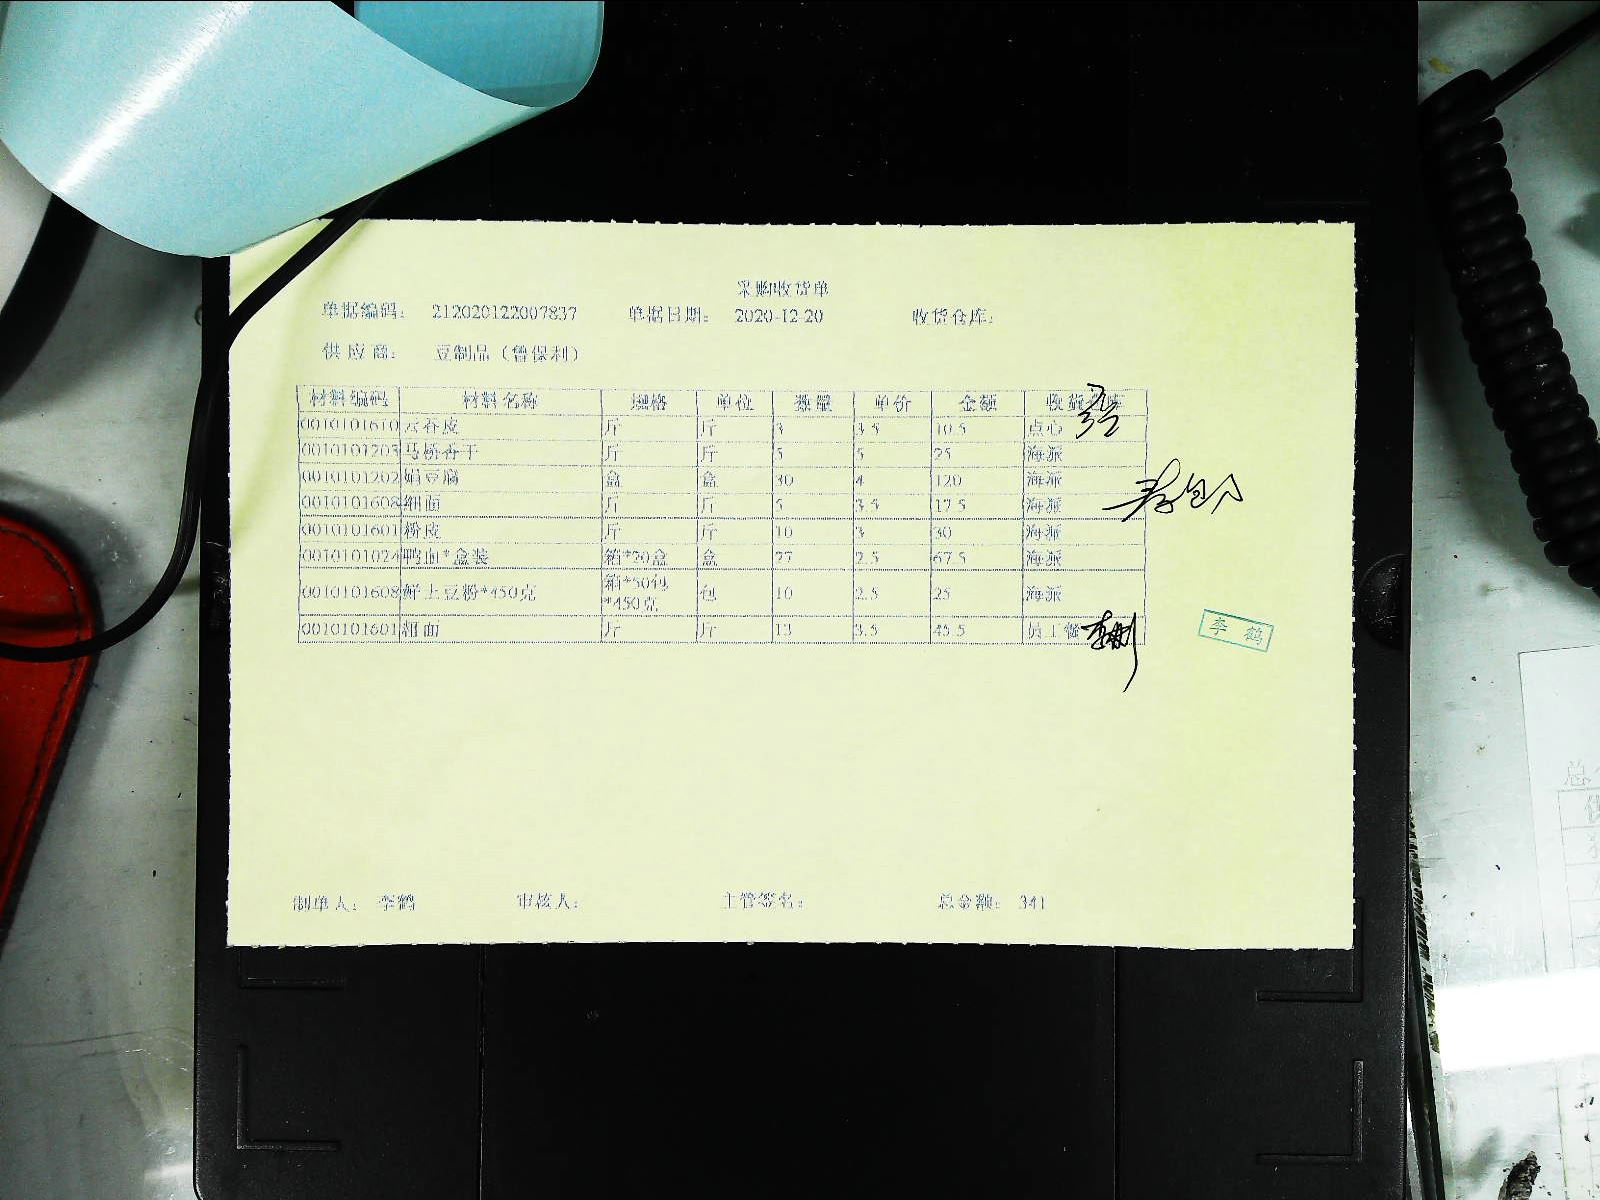 采购收货单
单据编码： 212020122007837 单据日期： 2020-12-20 收货仓库：
供应商： 豆制品（鲁保利）
材料编码 材料名称 规格 单位 数量 单价 金额 收货仓库
0010101610 云吞皮 斤 斤 3 3.5 10.5 点心
0010101203 马桥香干 斤 斤 5 5 25 海派
0010101202 绢豆腐 盒 盒 30 4 120 海派
0010101608 细面 斤 斤 5 3.5 17.5 海派
0010101601 粉皮 斤 斤 10 3 30 海派
0010101024 鸭血*盒装 箱*20盒 盒 27 2.5 67.5 海派
0010101608 鲜土豆粉*450克 箱*50包*450克 包 10 2.5 25 海派
0010101601 粗面 斤 斤 13 3.5 45.5 员工餐
李鹤
制单人： 李鹤 审核人： 主管签名： 总金额： 341